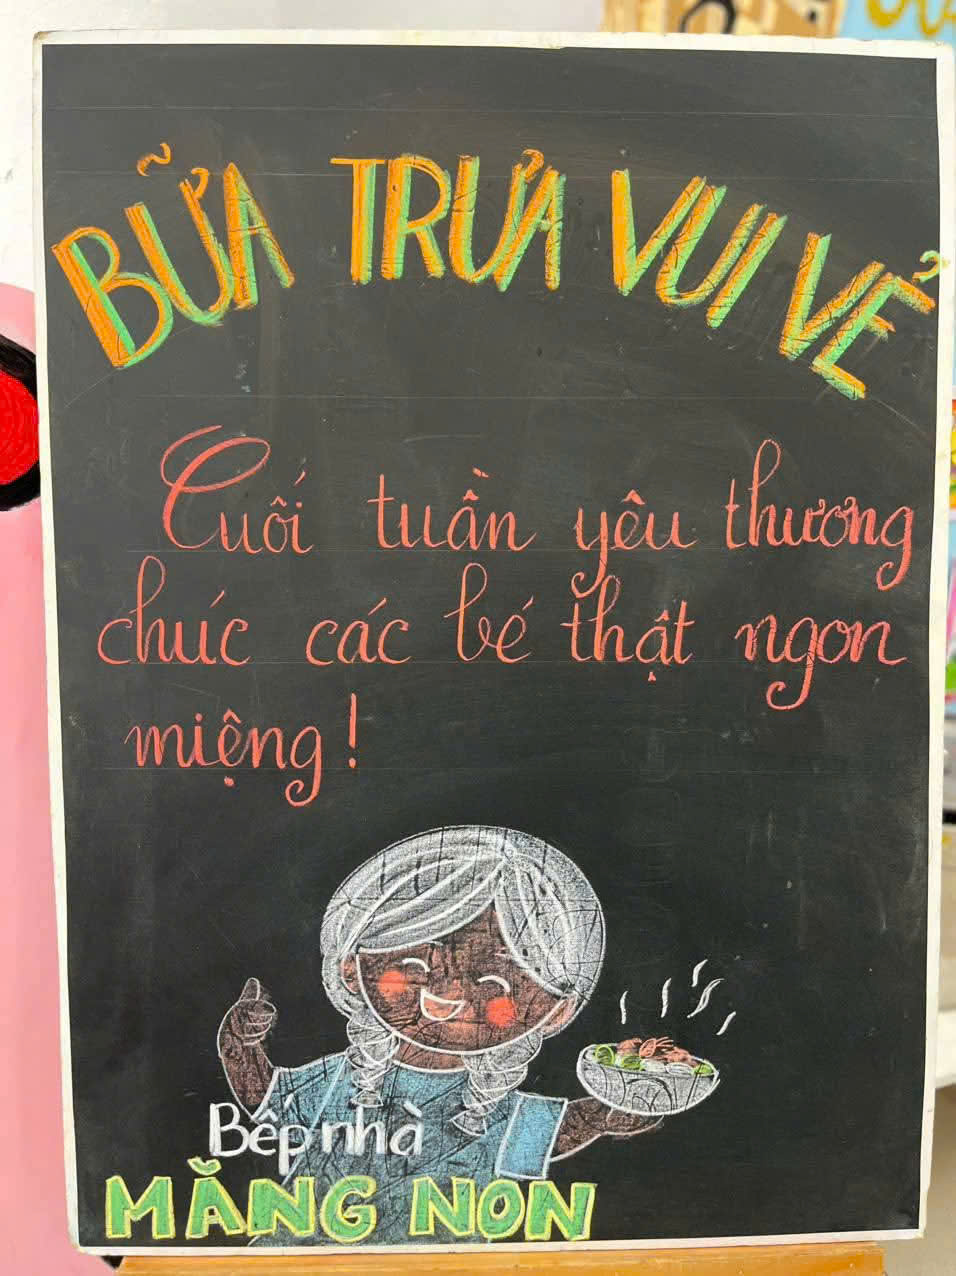 BỮA TRƯA VUI VẺ
Cuối tuần yêu thương
chúc các bé thật ngon
miệng!
Bếp nhà
MĂNG NON